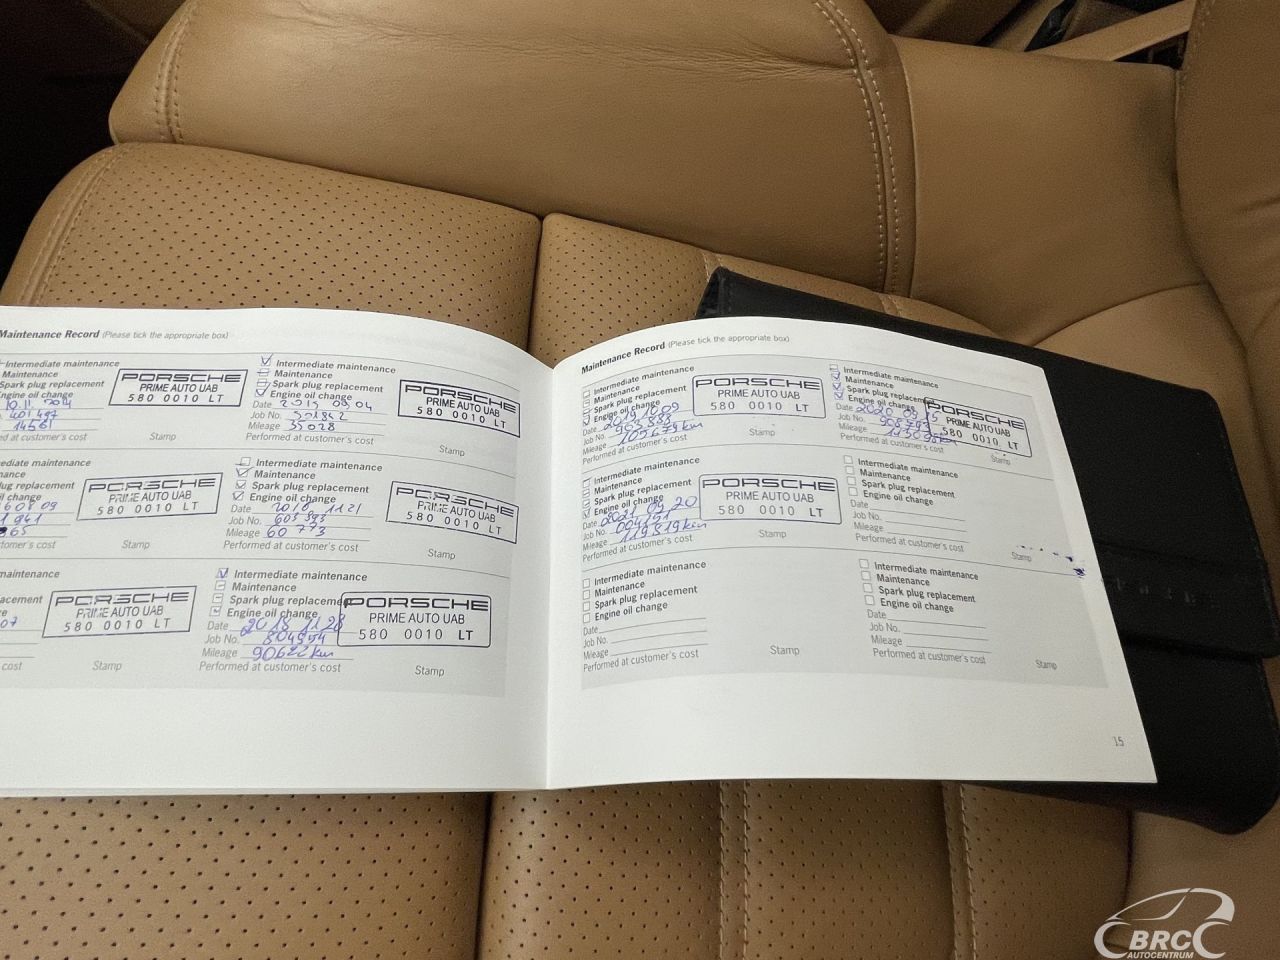 Maintenance Record (Please tick the appropriate box)
Intermediate maintenance
Maintenance
Spark plug replacement
Engine oil change
14561
ed at customer's cost
PORSCHE
PRIME AUTO UAB
580 0010 LT
Stamp
Intermediate maintenance
Maintenance
Spark plug replacement
Engine oil change
Date 2015 09 04
Job No. 501842
Mileage 35028
Performed at customer's cost
PORSCHE
PRIME AUTO UAB
580 0010 LT
Stamp
ediate maintenance
nance
lug replacement
oil change
tomer's cost
PORSCHE
PRIME AUTO UAB
580 0010 LT
Stamp
Intermediate maintenance
Maintenance
Spark plug replacement
Engine oil change
Date 11 21
Job No. 603393
Mileage 60 773
Performed at customer's cost
PORSCHE
PRIME AUTO UAB
580 0010 LT
Stamp
maintenance
cement
ge
07
cost
PORSCHE
PRIME AUTO UAB
580 0010 LT
Stamp
Intermediate maintenance
Maintenance
Spark plug replaceme
Engine oil change
Date 2018 11 28
Job No. 804954
Mileage 90622 km
Performed at customer's cost
PORSCHE
PRIME AUTO UAB
580 0010 LT
Stamp
Maintenance Record (Please tick the appropriate box)
Intermediate maintenance
Maintenance
Spark plug replacement
Engine oil change
Date 2019 10 09
Job No. 903888
Mileage 105679 km
Performed at customer's cost
PORSCHE
PRIME AUTO UAB
580 0010 LT
Stamp
Intermediate maintenance
Maintenance
Spark plug replacem
Engine oil change
Date 2020 09 15
Job No. 908793
Mileage
Performed at customer's cost
PORSCHE
PRIME AUTO UAB
580 0010 LT
Stamp
Intermediate maintenance
Maintenance
Spark plug replacement
Engine oil change
Date 2021 09 20
Job No.
Mileage 119819 km
Performed at customer's cost
PORSCHE
PRIME AUTO UAB
580 0010 LT
Stamp
Intermediate maintenance
Maintenance
Spark plug replacement
Engine oil change
Date
Job No.
Mileage
Performed at customer's cost
Stamp
Intermediate maintenance
Maintenance
Spark plug replacement
Engine oil change
Date
Job No.
Mileage
Performed at customer's cost
Stamp
Intermediate maintenance
Maintenance
Spark plug replacement
Engine oil change
Date
Job No.
Mileage
Performed at customer's cost
Stamp
15
BRC
AUTOCENTRUM